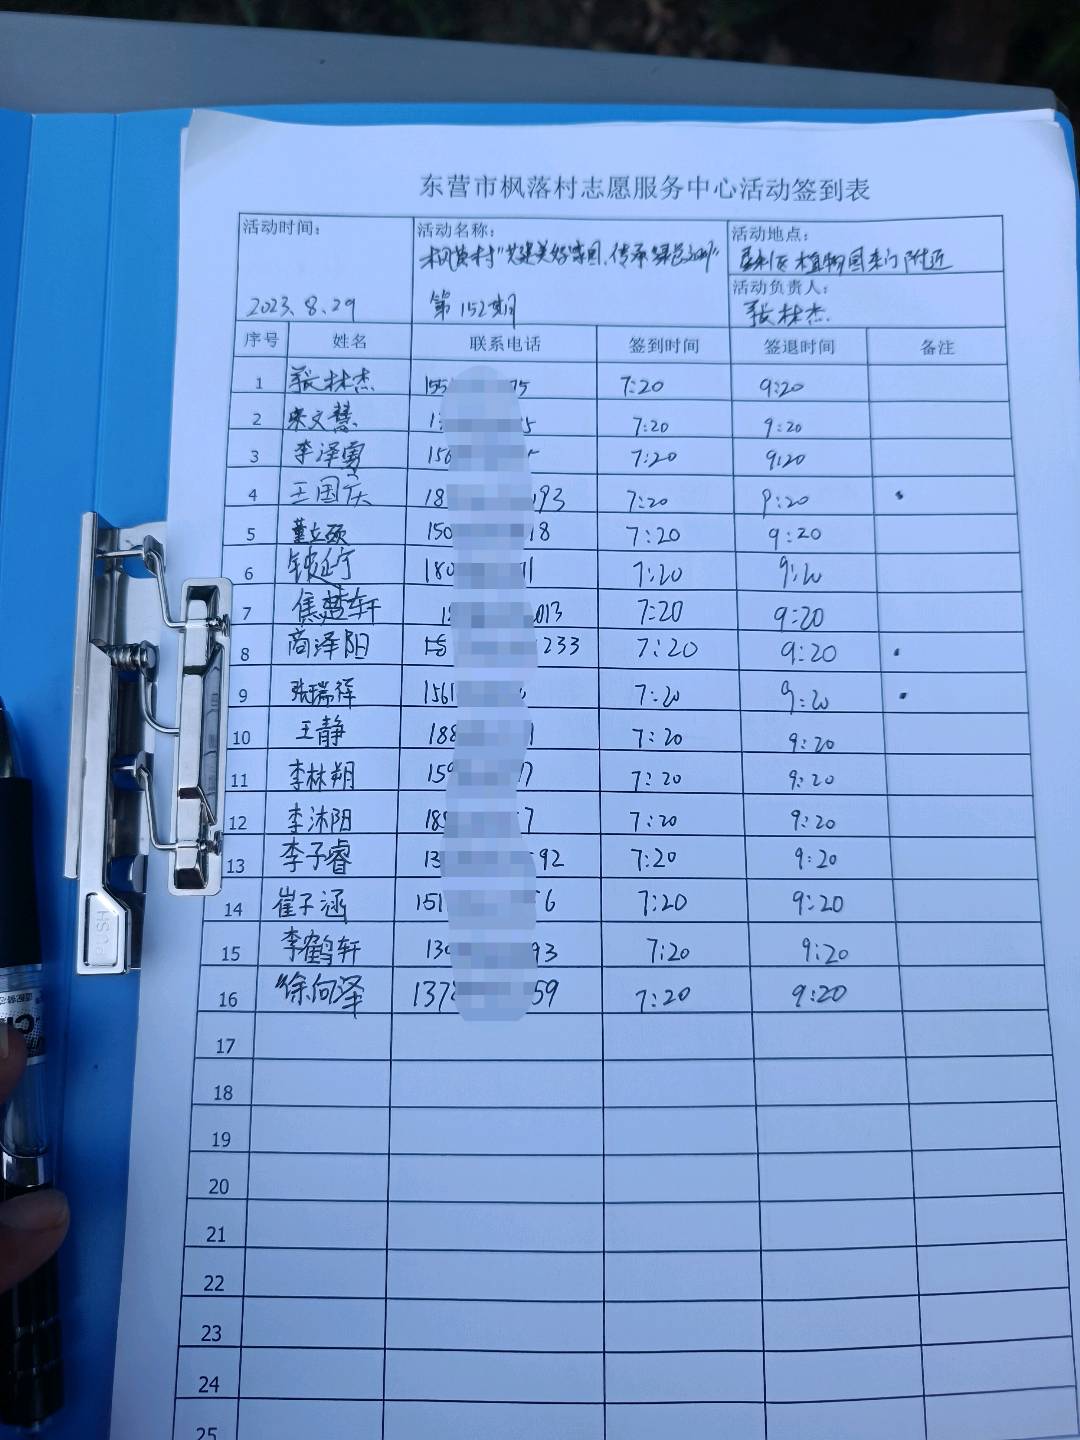 东营市枫落村志愿服务中心活动签到表
活动时间: 活动名称: 活动地点:
枫落村"共建美好家园,传承绿色文明" 垦利区植物园东门附近
活动负责人:
2023.8.29 第152期 张林杰
序号 姓名 联系电话 签到时间 签退时间 备注
1 张林杰 155 75 7:20 9:20
2 宋文慧 1 5 7:20 9:20
3 李泽 156 7:20 9:20
4 王国庆 18 193 7:20 9:20 ·
5 董立硕 150 18 7:20 9:20
6 180 1 7:20 9:20
7 焦楚轩 1 013 7:20 9:20
8 商泽阳 233 7:20 9:20 ·
9 张瑞祥 1561 7:20 9:20 ·
10 王静 188 1 7:20 9:20
11 李林朔 159 7 7:20 9:20
12 李沐阳 18 7 7:20 9:20
13 李子睿 13 92 7:20 9:20
14 崔子涵 151 6 7:20 9:20
15 李鹤轩 130 93 7:20 9:20
16 徐向泽 137 59 7:20 9:20
17
18
19
20
21
22
23
24
25